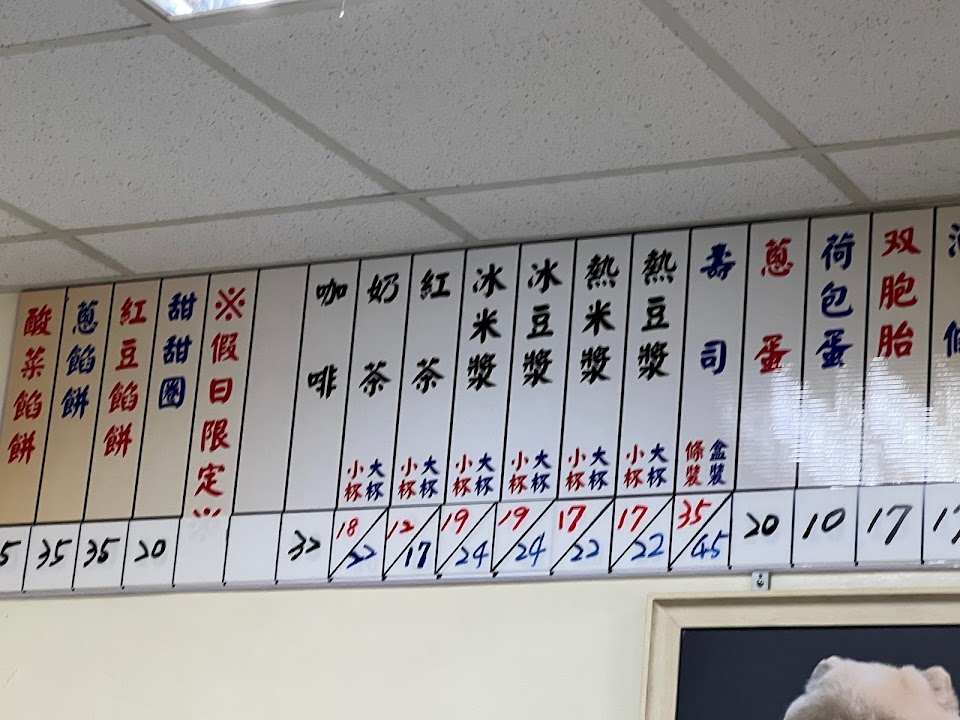 双胞胎
17
荷包蛋
10
蔥蛋
20
壽司
盒裝
條裝
35
45
熱豆漿
大杯
小杯
17
22
熱米漿
大杯
小杯
17
22
冰豆漿
大杯
小杯
19
24
冰米漿
大杯
小杯
19
24
紅茶
大杯
小杯
12
17
奶茶
大杯
小杯
18
22
咖啡
32
※假日限定※
甜甜圈
20
紅豆餡餅
35
蔥餡餅
35
酸菜餡餅